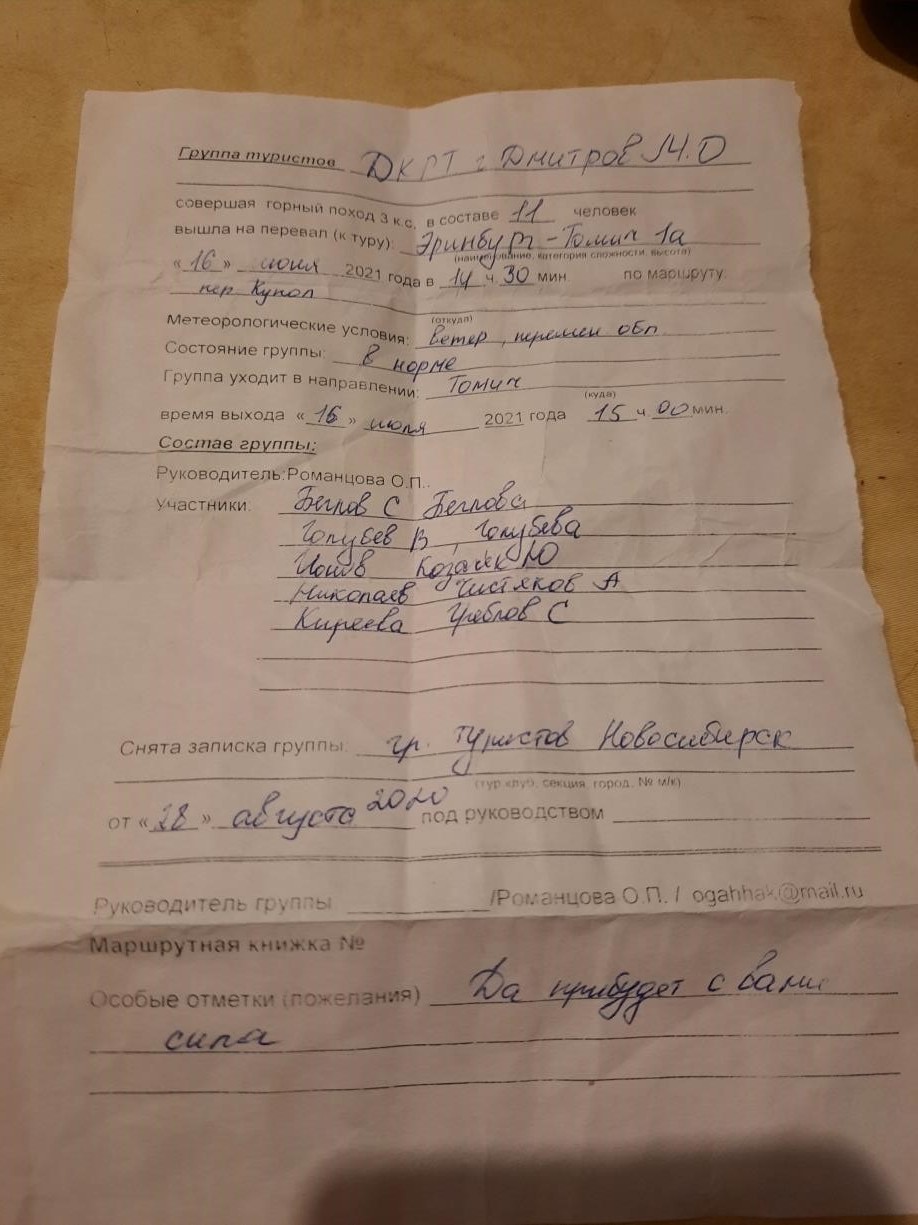 Группа туристов ДКРТ г Дмитров М.О
совершая горный поход 3 к.с. в составе 11 человек
вышла на перевал (к туру): Эринбург-Томич 1а
(наименование, категория сложности, высота)
«16» июля 2021 года в 14 ч. 30 мин. по маршруту:
пер Купол
(откуда)
Метеорологические условия: ветер, перемен обл
Состояние группы: в норме
Группа уходит в направлении: Томич
(куда)
время выхода «16» июля 2021 года 15 ч. 00 мин.
Состав группы:
Руководитель:Романцова О.П..
Участники: Беглов С Беглова
Голубев В, Голубева
Ионов Козачек Ю
Николаев Чистяков А
Киреева С
Снята записка группы: гр. туристов Новосибирск
(тур клуб, секция, город, № м/к)
от «28» августа 2020 под руководством
Руководитель группы /Романцова О.П. / ogahhak@mail.ru
Маршрутная книжка №
Особые отметки (пожелания) Да прибудет с вами
сила